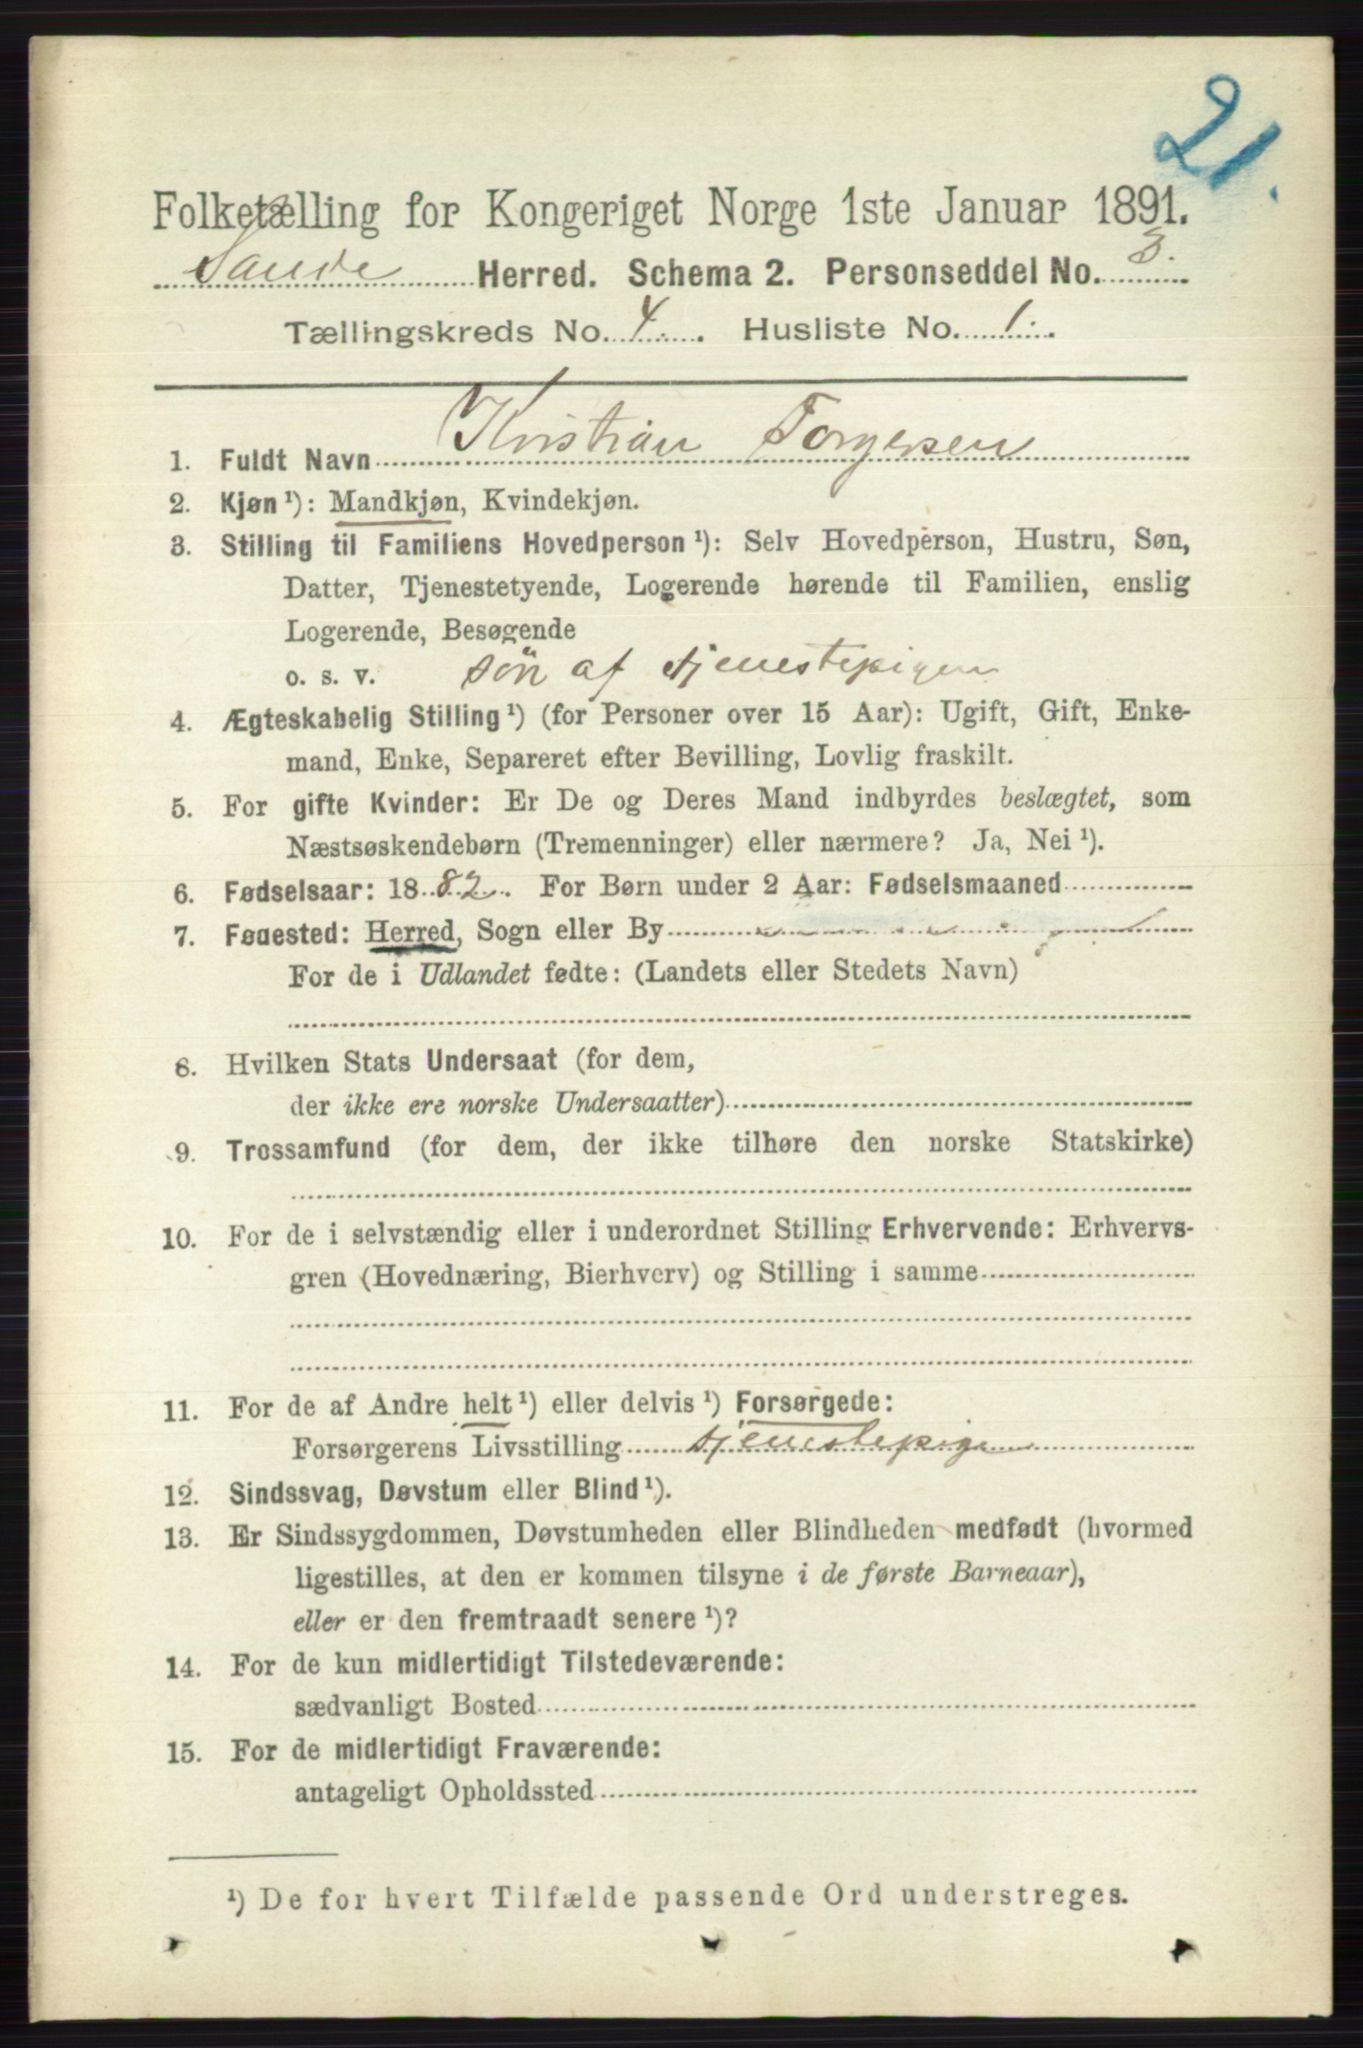 21.
Folketælling for Kongeriget Norge 1ste Januar 1891.
Sande Herred. Schema 2. Personseddel No. 3.
Tællingskreds No. 4. Husliste No. 1.
1. Fuldt Navn Kristian Torgersen
2. Kjøn ¹): Mandkjøn, Kvindekjøn.
3. Stilling til Familiens Hovedperson ¹): Selv Hovedperson, Hustru, Søn,
Datter, Tjenestetyende, Logerende hørende til Familien, enslig
Logerende, Besøgende
o. s. v. søn af tjenestepigen
4. Ægteskabelig Stilling ¹) (for Personer over 15 Aar): Ugift, Gift, Enke-
mand, Enke, Separeret efter Bevilling, Lovlig fraskilt.
5. For gifte Kvinder: Er De og Deres Mand indbyrdes beslægtet, som
Næstsøskendebørn (Tremenninger) eller nærmere? Ja, Nei ¹).
6. Fødselsaar: 1882. For Børn under 2 Aar: Fødselsmaaned
7. Fødested: Herred, Sogn eller By
For de i Udlandet fødte: (Landets eller Stedets Navn)
8. Hvilken Stats Undersaat (for dem,
der ikke ere norske Undersaatter)
9. Trossamfund (for dem, der ikke tilhøre den norske Statskirke)
10. For de i selvstændig eller i underordnet Stilling Erhvervende: Erhvervs-
gren (Hovednæring, Bierhverv) og Stilling i samme
11. For de af Andre helt ¹) eller delvis ¹) Forsørgede:
Forsørgerens Livsstilling tjenestepige
12. Sindssvag, Døvstum eller Blind ¹).
13. Er Sindssygdommen, Døvstumheden eller Blindheden medfødt (hvormed
ligestilles, at den er kommen tilsyne i de første Barneaar),
eller er den fremtraadt senere ¹)?
14. For de kun midlertidigt Tilstedeværende:
sædvanligt Bosted
15. For de midlertidigt Fraværende:
antageligt Opholdssted
¹) De for hvert Tilfælde passende Ord understreges.